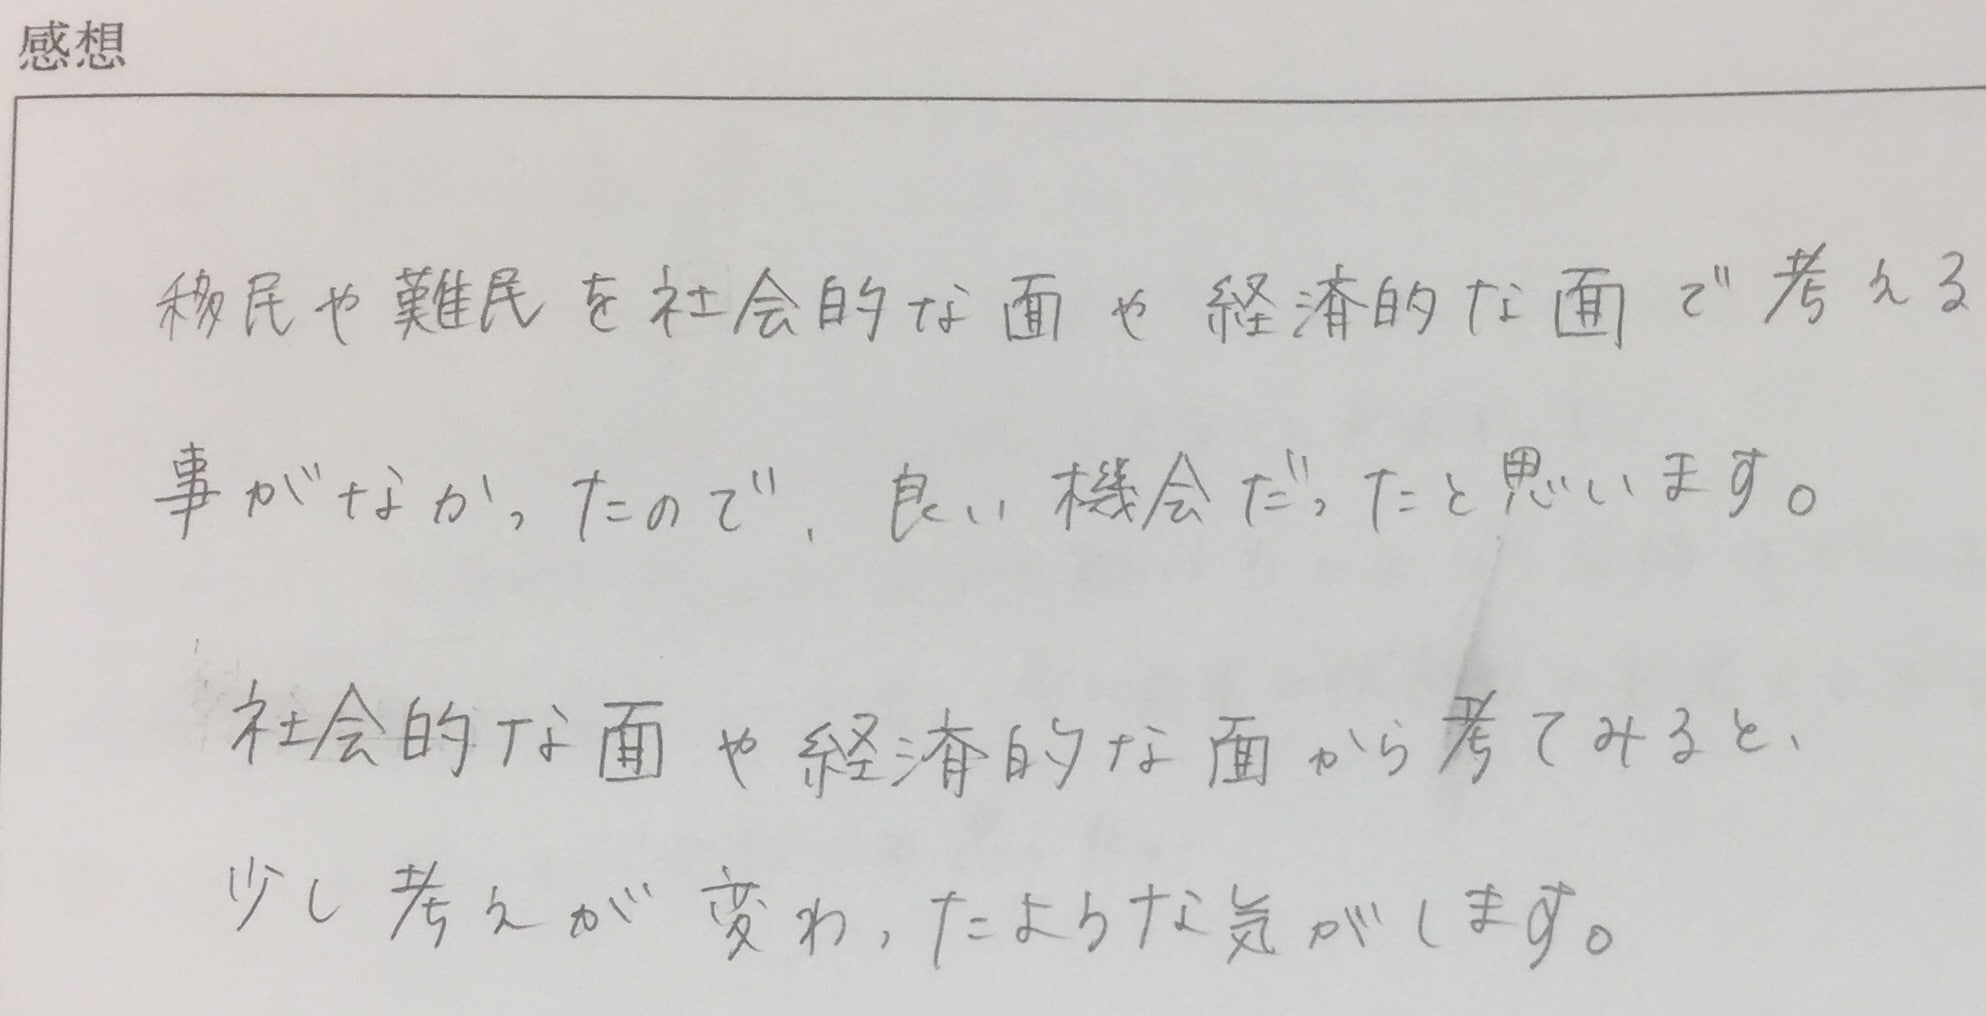 感想
移民や難民を社会的な面や経済的な面で考える
事がなかったので、良い機会だったと思います。
社会的な面や経済的な面から考てみると、
少し考えが変わったような気がします。